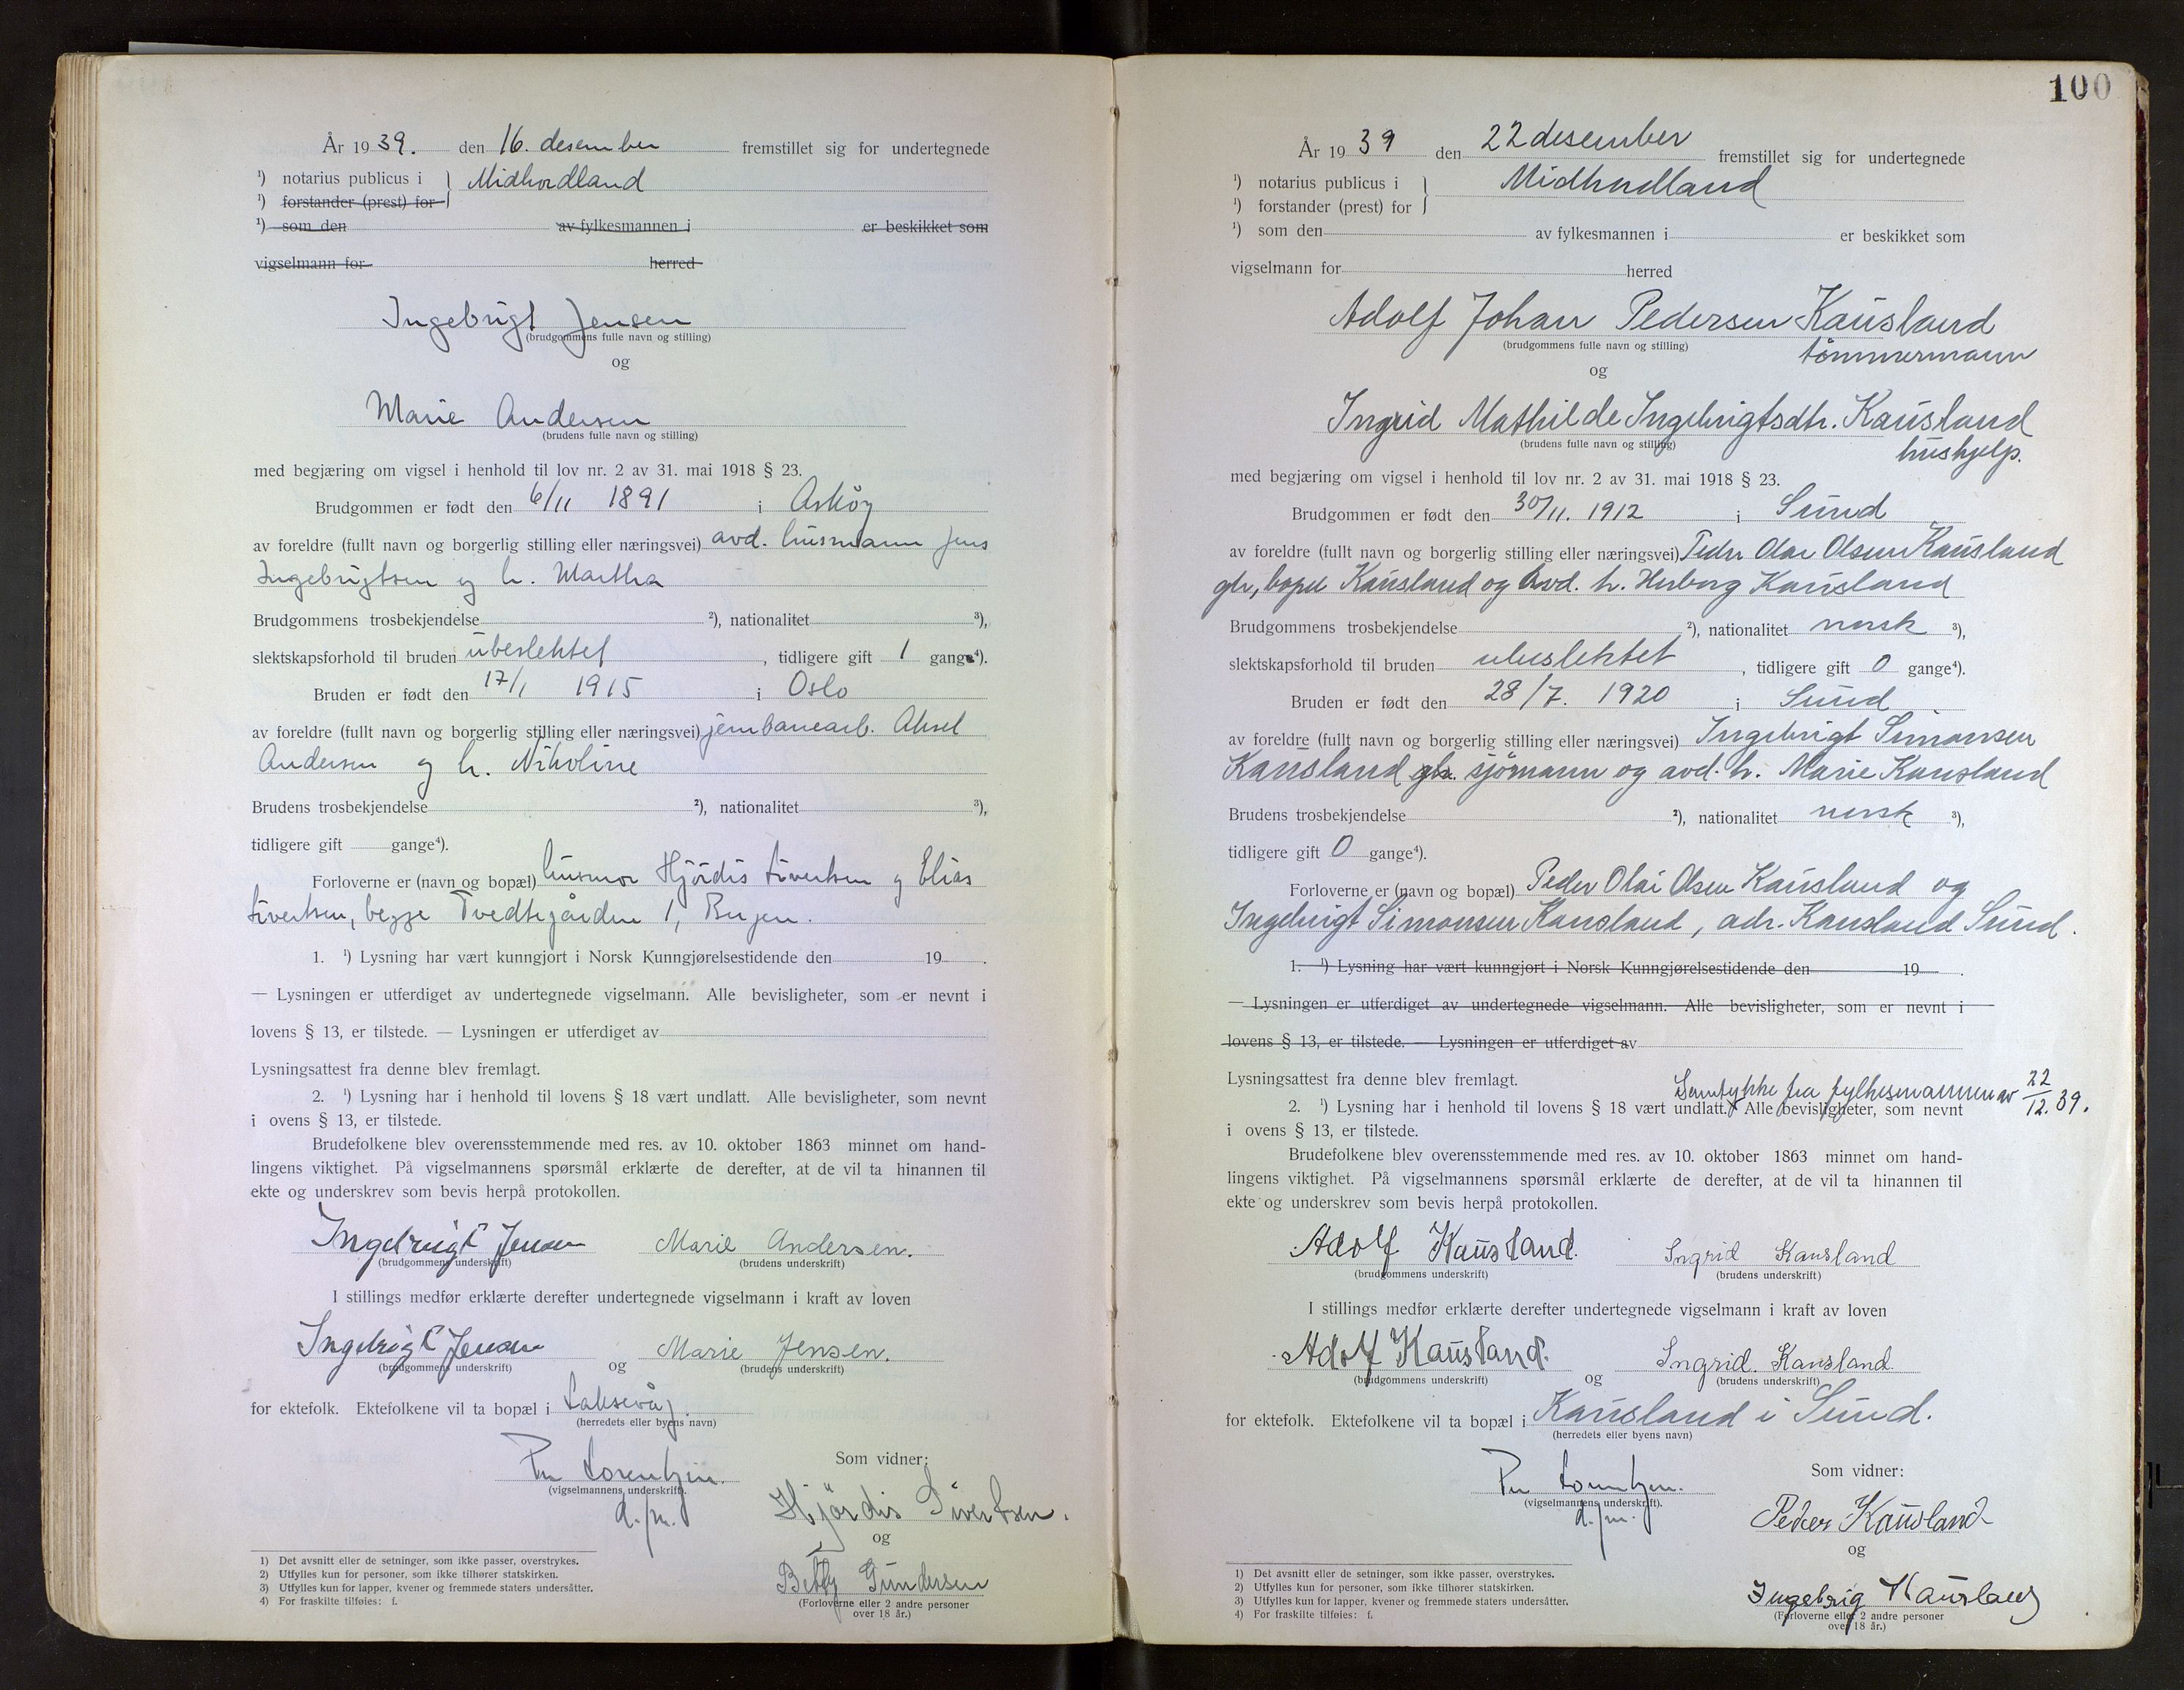 År 19 39. den 16. desember fremstillet sig for undertegnede
¹) notarius publicus i } Midhordland
¹) forstander (prest) for
¹) som den av fylkesmannen i er beskikket som
vigselmann for herred
Ingebrigt Jensen
(brudgommens fulle navn og stilling)
og
Marie Andersen
(brudens fulle navn og stilling)
med begjæring om vigsel i henhold til lov nr. 2 av 31. mai 1918 § 23.
Brudgommen er født den 6/11 1891 i Askøy
av foreldre (fullt navn og borgerlig stilling eller næringsvei) avd. husmann Jens
Ingebrigtsen og h. Martha
Brudgommens trosbekjendelse ²), nationalitet ³),
slektskapsforhold til bruden ubeslektet, tidligere gift 1 gange⁴).
Bruden er født den 17/1 1915 i Oslo
av foreldre (fullt navn og borgerlig stilling eller næringsvei) jernbanearb. Aksel
Andersen og h. Nikoline
Brudens trosbekjendelse ²), nationalitet ³),
tidligere gift gange⁴).
Forloverne er (navn og bopæl) husmor Hjördis Sivertsen og Elias
Sivertsen, begge Tvedtegården 1, Bergen.
1. ¹) Lysning har vært kunngjort i Norsk Kunngjørelsestidende den 19 .
— Lysningen er utferdiget av undertegnede vigselmann. Alle bevisligheter, som er nevnt i
lovens § 13, er tilstede. — Lysningen er utferdiget av
Lysningsattest fra denne blev fremlagt.
2. ¹) Lysning har i henhold til lovens § 18 vært undlatt. Alle bevisligheter, som nevnt
i ovens § 13, er tilstede.
Brudefolkene blev overensstemmende med res. av 10. oktober 1863 minnet om hand-
lingens viktighet. På vigselmannens spørsmål erklærte de derefter, at de vil ta hinannen til
ekte og underskrev som bevis herpå protokollen.
Ingebrigt Jensen Marie Andersen.
(brudgommens underskrift) (brudens underskrift)
I stillings medfør erklærte derefter undertegnede vigselmann i kraft av loven
Ingebrigt Jensen og Marie Jensen.
(brudgommens underskrift) (brudens underskrift)
for ektefolk. Ektefolkene vil ta bopæl i Laksevåg.
(herredets eller byens navn)
Per Lorentzen.
(vigselmannens underskrift).
d./m.
Som vidner:
Hjördis Sivertsen.
og
Betty Gundersen
(Forloverne eller 2 andre personer
over 18 år.)
1) Det avsnitt eller de setninger, som ikke passer, overstrykes.
2) Utfylles kun for personer, som ikke tilhører statskirken.
3) Utfylles kun for lapper, kvener og fremmede staters undersåtter.
4) For fraskilte tilføies: f.
100
År 19 39 den 22 desember fremstillet sig for undertegnede
¹) notarius publicus i } Midhordland
¹) forstander (prest) for
¹) som den av fylkesmannen i er beskikket som
vigselmann for herred
Adolf Johan Pedersen Kausland
(brudgommens fulle navn og stilling) tömmermann
og
Ingrid Mathilde Ingebrigtsdtr. Kausland
(brudens fulle navn og stilling) hushjelp.
med begjæring om vigsel i henhold til lov nr. 2 av 31. mai 1918 § 23.
Brudgommen er født den 30/11. 1912 i Sund
av foreldre (fullt navn og borgerlig stilling eller næringsvei) Peder Olai Olsen Kausland
gbr, bopel Kausland og avd. h. Herborg Kausland
Brudgommens trosbekjendelse ²), nationalitet norsk ³),
slektskapsforhold til bruden ubeslektet, tidligere gift 0 gange⁴).
Bruden er født den 28/7. 1920 i Sund
av foreldre (fullt navn og borgerlig stilling eller næringsvei) Ingebrigt Simonsen
Kausland gbr. sjømann og avd. h. Marie Kausland
Brudens trosbekjendelse ²), nationalitet norsk ³),
tidligere gift 0 gange⁴).
Forloverne er (navn og bopæl) Peder Olai Olsen Kausland og
Ingebrigt Simonsen Kausland, adr. Kausland Sund.
1. ¹) Lysning har vært kunngjort i Norsk Kunngjørelsestidende den 19 .
— Lysningen er utferdiget av undertegnede vigselmann. Alle bevisligheter, som er nevnt i
lovens § 13, er tilstede. — Lysningen er utferdiget av
Lysningsattest fra denne blev fremlagt.
Samtykke fra fylkesmannen av 22/12. 39.
2. ¹) Lysning har i henhold til lovens § 18 vært undlatt. Alle bevisligheter, som nevnt
i ovens § 13, er tilstede.
Brudefolkene blev overensstemmende med res. av 10. oktober 1863 minnet om hand-
lingens viktighet. På vigselmannens spørsmål erklærte de derefter, at de vil ta hinannen til
ekte og underskrev som bevis herpå protokollen.
Adolf Kausland. Ingrid Kausland
(brudgommens underskrift) (brudens underskrift)
I stillings medfør erklærte derefter undertegnede vigselmann i kraft av loven
Adolf Kausland. og Ingrid. Kausland
(brudgommens underskrift) (brudens underskrift)
for ektefolk. Ektefolkene vil ta bopæl i Kausland i Sund.
(herredets eller byens navn)
Per Lorentzen.
(vigselmannens underskrift).
d./m.
Som vidner:
Peder Kausland
og
Ingebrig Kausland
(Forloverne eller 2 andre personer
over 18 år.)
1) Det avsnitt eller de setninger, som ikke passer, overstrykes.
2) Utfylles kun for personer, som ikke tilhører statskirken.
3) Utfylles kun for lapper, kvener og fremmede staters undersåtter.
4) For fraskilte tilføies: f.